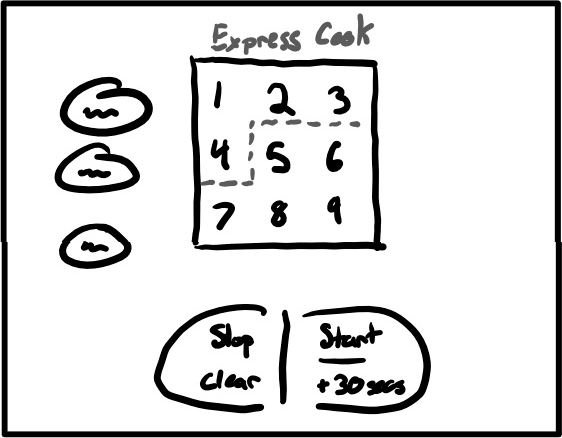 Express Cook
1 2 3
4 5 6
7 8 9
Stop
clear
Start
+30secs